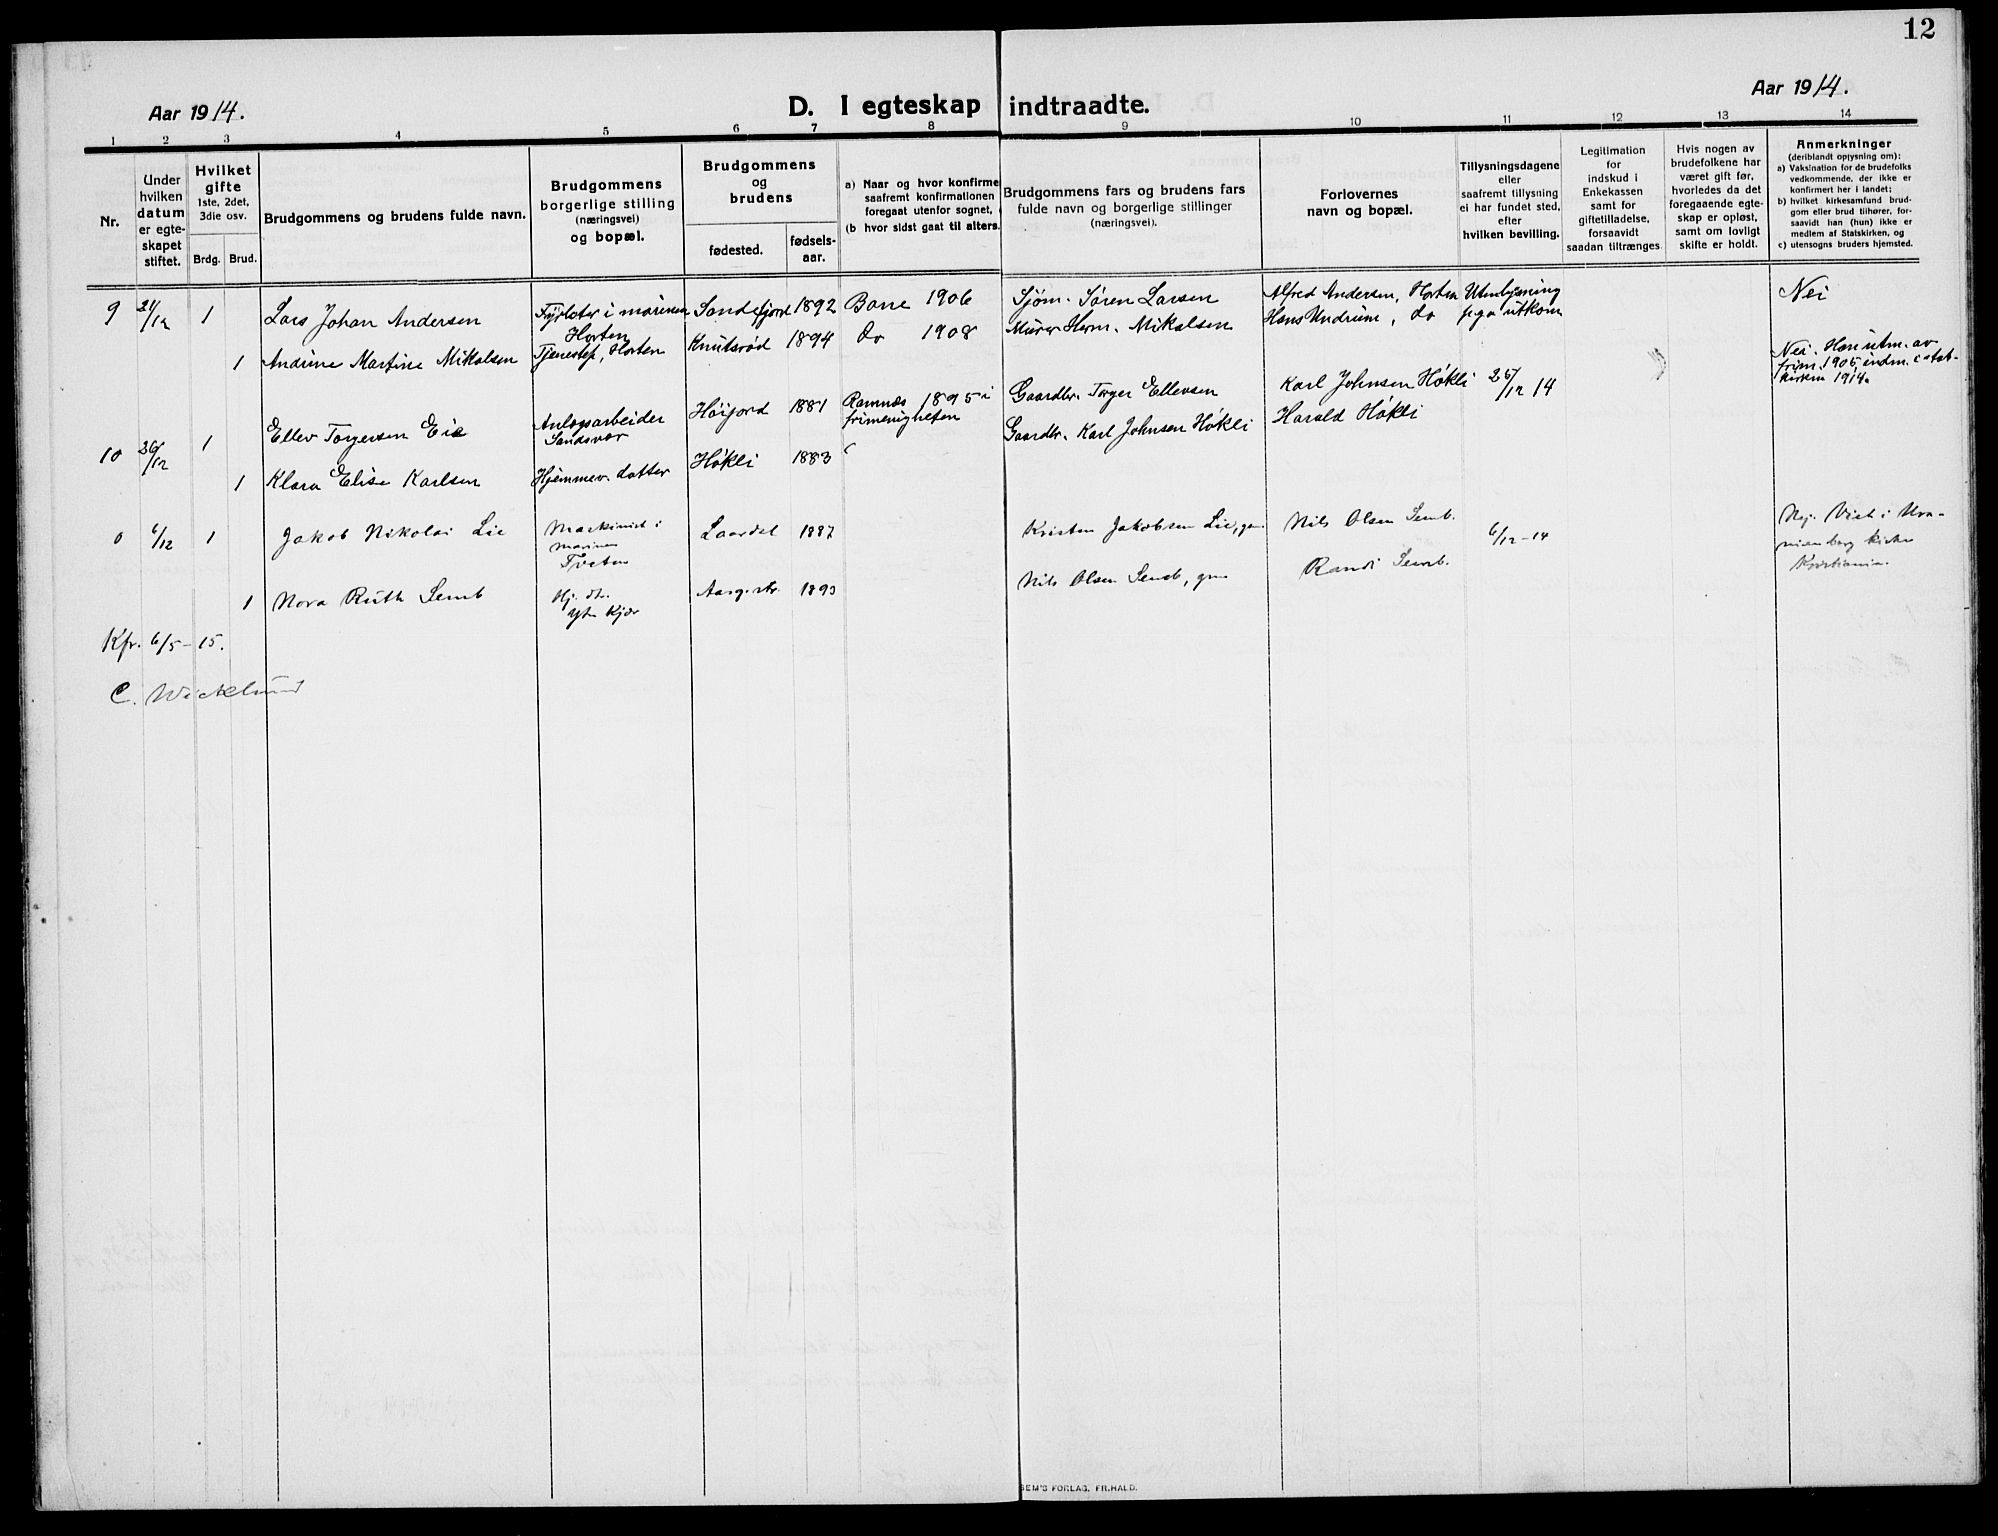 12
Aar 1914.
D. I egteskap indtraadte.
Aar 1914.
1 2 3 4 5 6 7 8 9 10 11 12 13 14
Nr.
Under
hvilken
datum
er egte-
skapet
stiftet.
Hvilket
gifte
1ste, 2det,
3die osv.
Brdg. Brud.
Brudgommens og brudens fulde navn.
Brudgommens
borgerlige stilling
(næringsvei)
og bopæl.
Brudgommens
og
brudens
fødested.
fødsels-
aar.
a) Naar og hvor konfirme
saafremt konfirmationen
foregaat utenfor sognet,
(b hvor sidst gaat til alters.
Brudgommens fars og brudens fars
fulde navn og borgerlige stillinger
(næringsvei).
Forlovernes
navn og bopæl.
Tillysningsdagene
eller
saafremt tillysning
ei har fundet sted,
efter
hvilken bevilling.
Legitimation
for
indskud i
Enkekassen
samt for
giftetilladelse,
forsaavidt
saadan tiltrænges.
Hvis nogen av
brudefolkene har
været gift før,
hvorledes da det
foregaaende egte-
skap er opløst,
samt om lovligt
skifte er holdt.
Anmerkninger
(deriblandt oplysning om):
a) Vaksination for de brudefolks
vedkommende, der ikke er
konfirmert her i landet;
b) hvilket kirkesamfund brud-
gom eller brud tilhører, for-
saavidt han (hun) ikke er
medlem af Statskirken, og
c) utensogns bruders hjemsted.
9 21/12 1 Lars Johan Andersen
Fyrbøter i marinen
Horten
Sandefjord 1892 Borre 1906
Sjøm. Søren Larsen
Alfred Andersen, Horten
Utenlysning
Nei
1 Andrine Martine Mikalsen
Tjenestep, Horten
Knutsrød 1894 do 1908
Murer Herm. Mikalsen
Hans Undrum, do
pga utkom
10 26/12 1 Ellev Torgersen Eie
Anlægsarbeider
Sandsvær
Høijord 1881
Ramnæs 1895 i
frimenigheten
Gaardbr. Torger Ellevsen
Karl Johnsen Høkli
25/12 14
Nei. Han utm. av
frim. 1905, indm. i stats-
kirken 1914.
1 Klara Elise Karlsen
Hjemmev. datter
Høkli 1883
Gaardbr. Karl Johnsen Høkli
Harald Høkli
0 6/12 1 Jakob Nikolai Lie
Maskinist i
marinen
Laardal 1887
Kristen Jakobsen Lie, gm.
Nils Olsen Semb.
6/12-14
Nej. Viet i Ura-
nienborg kirke
Kristiania.
1 Nora Ruth Semb
Hj. dtr.
Ytr. Kjær
Aasg.str. 1893
Nils Olsen Semb, gm
Randi Semb.
Kfr. 6/5-15.
GEM'S FORLAG. FR.HALD.